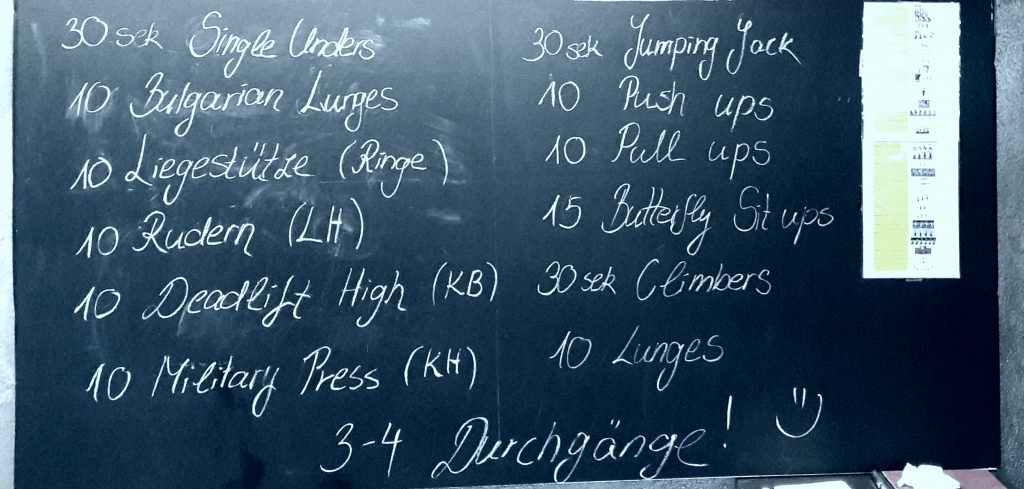 30 sek Single Unders
10 Bulgarian Lunges
10 Liegestütze (Ringe)
10 Rudern (LH)
10 Deadlift High (KB)
10 Military Press (KH)
30 sek Jumping Jack
10 Push ups
10 Pull ups
15 Butterfly Sit ups
30 sek Climbers
10 Lunges
3-4 Durchgänge!